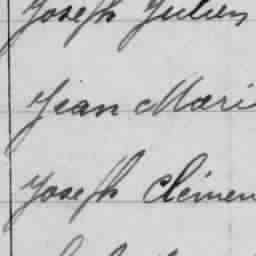 Joseph Julien
Jean Mari
Joseph Clémen